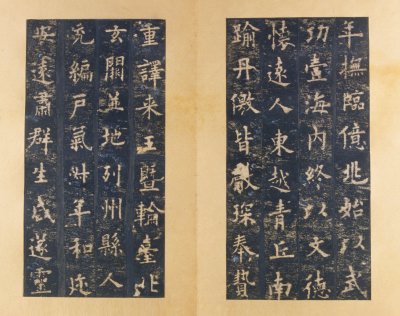 年撫臨億兆始以武
功壹海內終以文德
懷遠人東越青丘南
踰丹徼皆獻琛奉贄
重譯来王暨輪臺北
玄闕並地列州縣人
充編戶氣淑年和迩
安遠肅群生咸遂靈